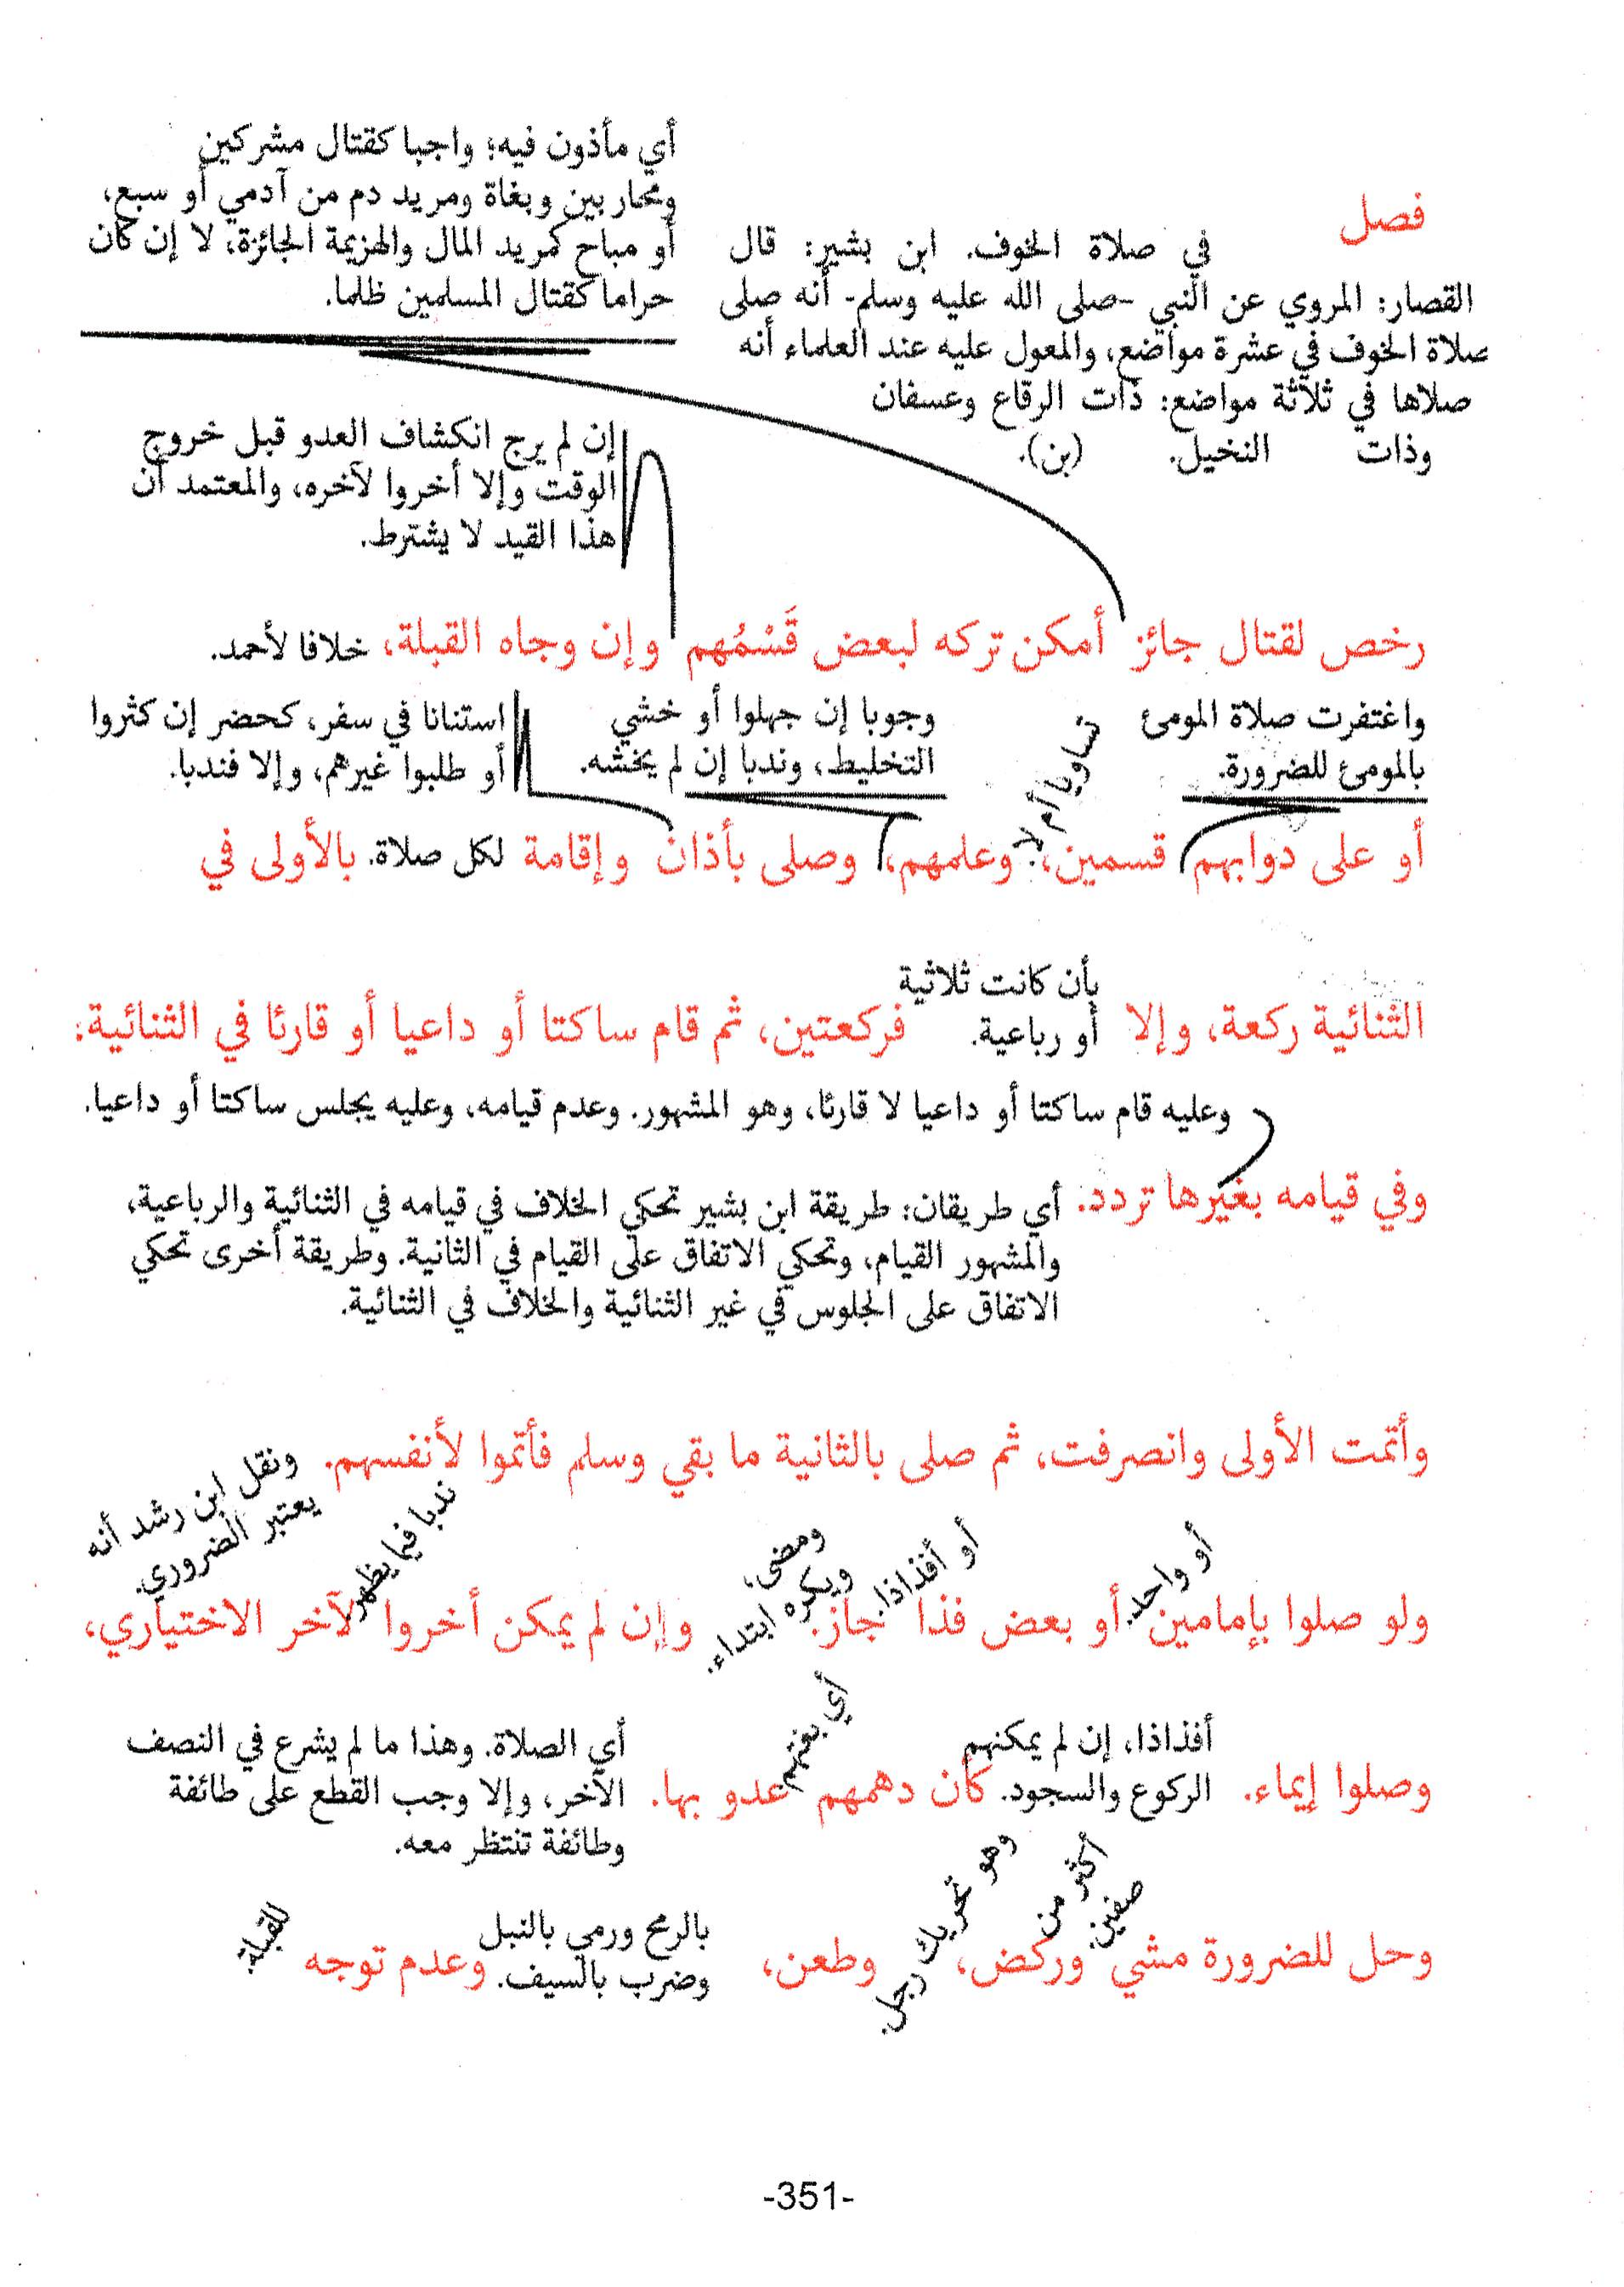 فصل
في صلاة الخوف. ابن بشير: قال
القصار: المروي عن النبي -صلى الله عليه وسلم- أنه صلى
صلاة الخوف في عشرة مواضع، والمعول عليه عند العلماء أنه
صلاها في ثلاثة مواضع: ذات الرقاع وعسفان
وذات النخيل. (بن).
أي مأذون فيه؛ واجبا كقتال مشركين
ومحاربين وبغاة ومريد دم من آدمي أو سبع،
أو مباح كمريد المال والهزيمة الجائزة، لا إن كان
حراما كقتال المسلمين ظلما.
إن لم يرج انكشاف العدو قبل خروج
الوقت وإلا أخروا لآخره، والمعتمد أن
هذا القيد لا يشترط.
رخص لقتال جائز أمكن تركه لبعض قَسْمُهم وإن وجاه القبلة، خلافا لأحمد.
واغتفرت صلاة المومئ
بالمومئ للضرورة.
تساويا أم لا
وجوبا إن جهلوا أو خشي
التخليط، وندبا إن لم يخشه.
استنانا في سفر، كحضر إن كثروا
أو طلبوا غيرهم، وإلا فندبا.
أو على دوابهم قسمين، وعلمهم، وصلى بأذان وإقامة لكل صلاة. بالأولى في
بأن كانت ثلاثية
أو رباعية.
الثنائية ركعة، وإلا فركعتين، ثم قام ساكتا أو داعيا أو قارئا في الثنائية:
وعليه قام ساكتا أو داعيا لا قارئا، وهو المشهور. وعدم قيامه، وعليه يجلس ساكتا أو داعيا.
وفي قيامه بغيرها تردد. أي طريقان: طريقة ابن بشير تحكي الخلاف في قيامه في الثنائية والرباعية،
والمشهور القيام، وتحكي الاتفاق على القيام في الثانية. وطريقة أخرى تحكي
الاتفاق على الجلوس في غير الثنائية والخلاف في الثنائية.
وأتمت الأولى وانصرفت، ثم صلى بالثانية ما بقي وسلم فأتموا لأنفسهم.
أو واحد.
أو أفذاذا.
ومضى،
ويكره
ابتداء.
ندبا فيما يظهر
ونقل ابن رشد أنه
يعتبر الضروري.
ولو صلوا بإمامين أو بعض فذا جاز. وإن لم يمكن أخروا لآخر الاختياري،
أفذاذا، إن لم يمكنهم
الركوع والسجود.
أي بغتهم
أي الصلاة. وهذا ما لم يشرع في النصف
الآخر، وإلا وجب القطع على طائفة
وطائفة تنتظر معه.
وصلوا إيماء. كأن دهمهم عدو بها.
أكثر من
صفين.
وهو تحريك رجل.
بالرمح ورمي بالنبل
وضرب بالسيف.
للقبلة.
وحل للضرورة مشي وركض، وطعن، وعدم توجه
-351-